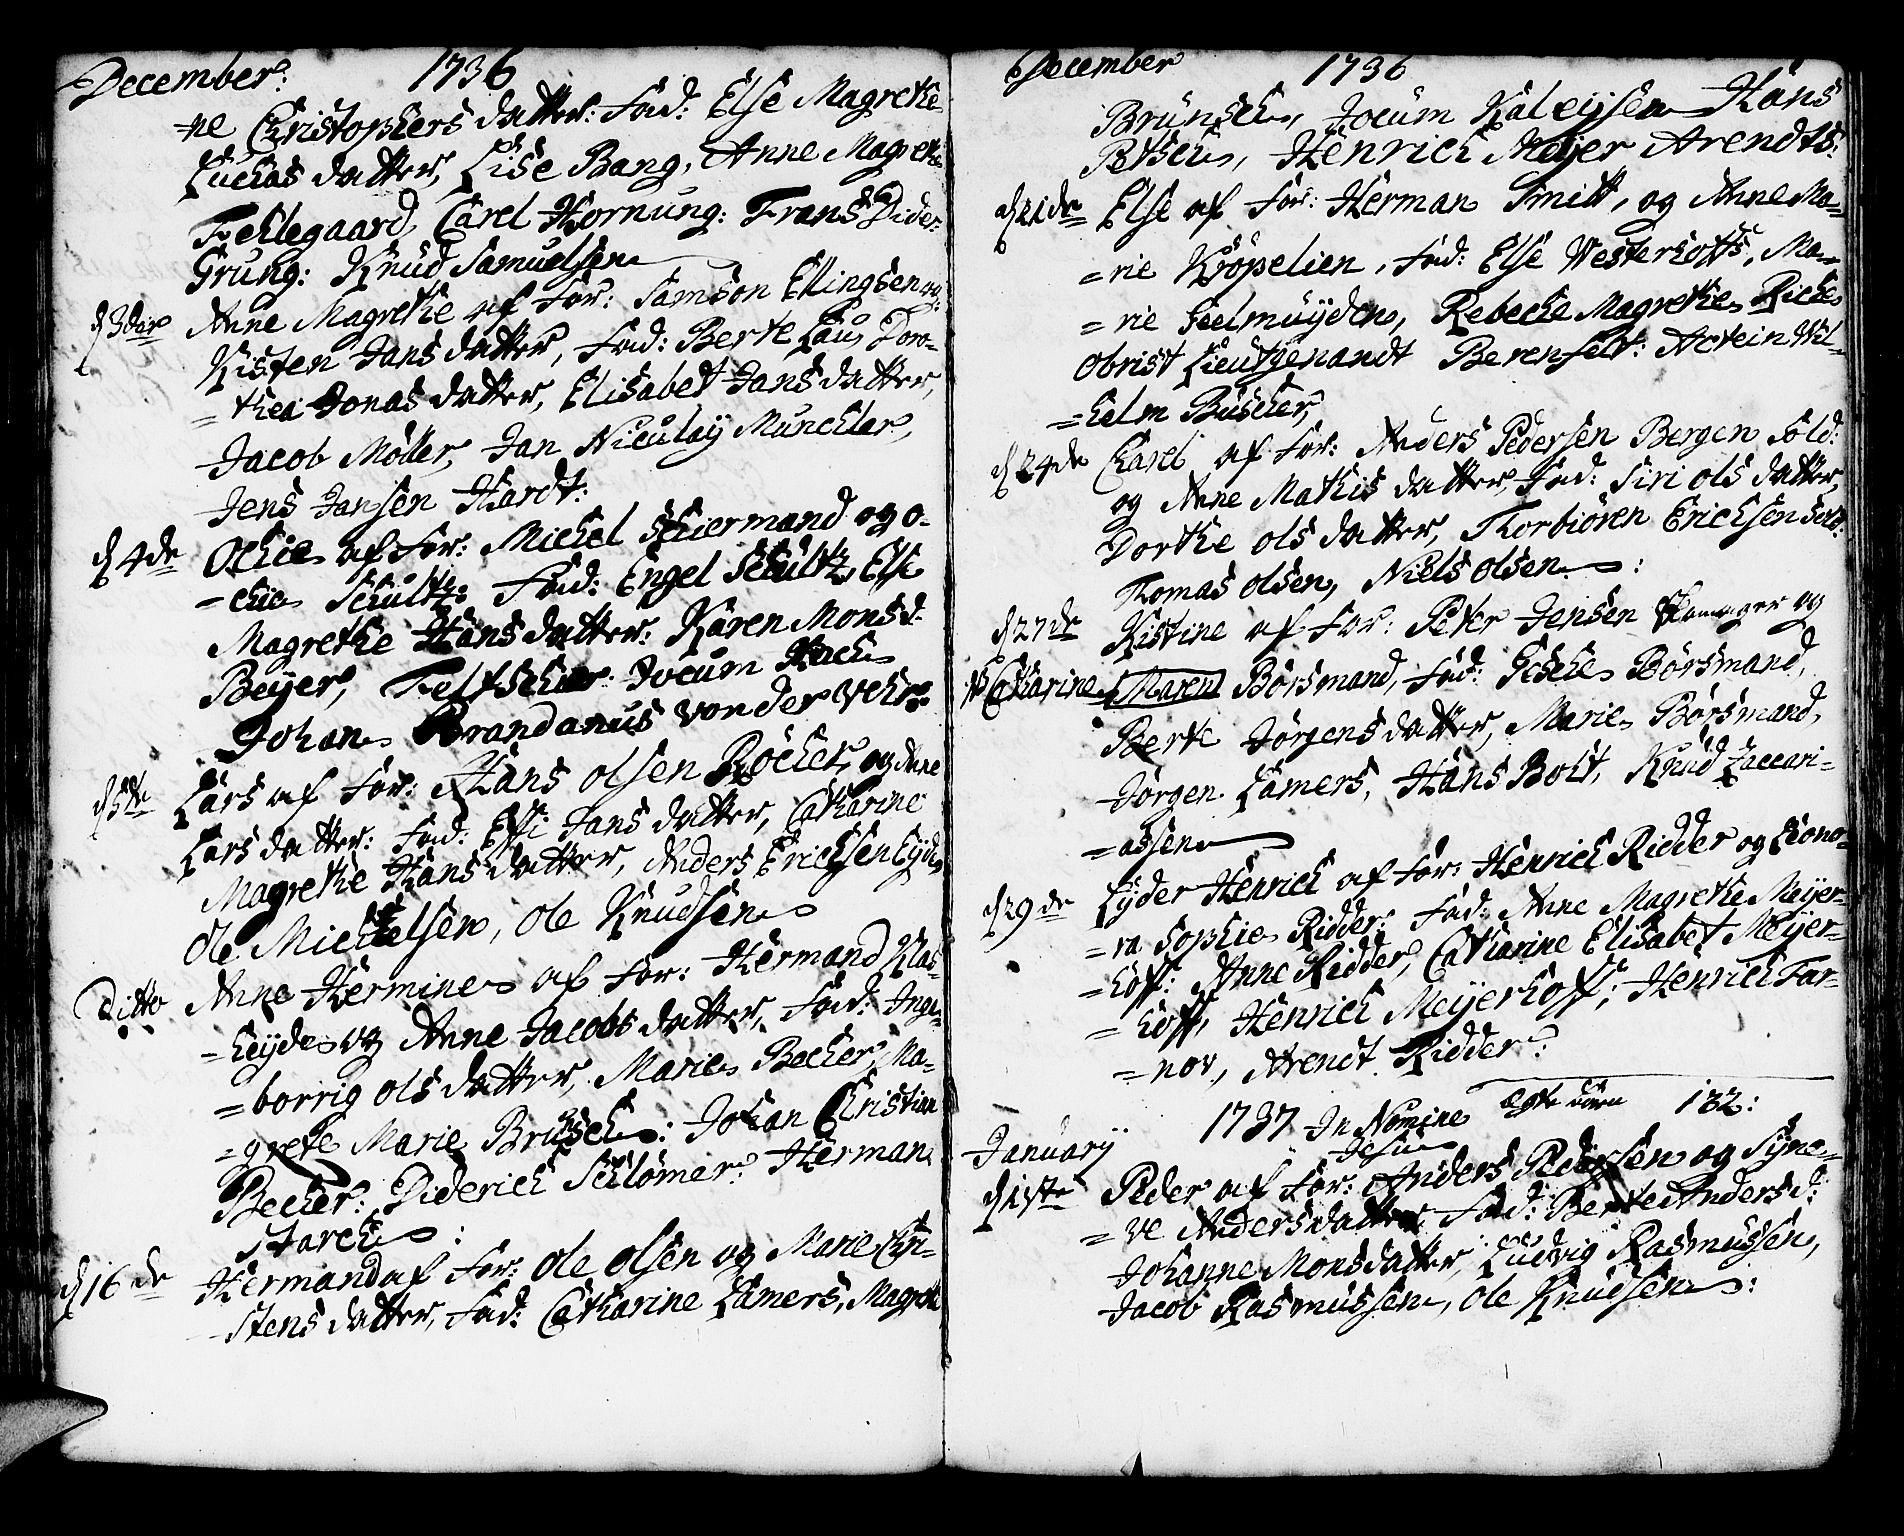 December: 1736
=ne Christophers datter: Fad: Else Magrethe
Luckas datter, Lise Bang, Anne Magrethe
Fehlegaard, Carel Hornung: Frans Dider:
Grung: Knud Samuelsen
d 3die Anne Magrethe af For: Samson Ellingsen og
Kisten Jans datter, Fad: Berte Lau, Doro-
=thea Jonas datter, Elisabet Jans datter,
Jacob Möller, Jan Niculaÿ Munchler,
Jens Jansen Hardt:
d 4de Ochie af For: Michel Schiermand og O-
=chie Schultz: Fad: Engel Schultz, Else
Magrethe Hans datter: Karen Monsd:
Beÿer, Feltscher Jocum Koch
Johan Brandanus Von der Vehr:
d 5te Lars af For: Hans Olsen Röcher, og Anne
Lars datter: Fad: Effi Jans datter, Catharine
Magrethe Hans datter, Anders Ericksen Eÿde,
Ole Michelsen, Ole Knudsen
Ditto Anne Hermine af For: Hermand Klas-
=heÿde og Anne Jacobs datter, Fad: Inge-
=borrig Ols datter, Marie Becher, Ma-
=grete Marie Brunsch: Johan Christian
Becher: Diderich Schlömer: Herman
Starch:
d 16de Hermand af For: Ole Olsen og Marie Chri-
=stens datter, Fad: Catharine Lamers, Magrethe
December 1736
Brünsch, Jocum Kaleÿsen Hans
Petsch, Henrich Meÿer Arendts:
d 21de Else af For: Herman Smitt, og Anne Ma-
=rie Kröpelien, Fad: Else Westerhoffs, Ma-
=rie Geelmuÿden, Rebecke Magrethe Riche
Obrist Lieutgenandt Berenfelt: Actein Wil-
=helm Büscher,
d 24de Charel af For: Anders Pedersen Bergen Sold:
og Anne Mathis datter, Fad: Siri Ols datter,
Dorthe Ols datter, Thorbiören Ericksen Sold:
Thomas Olsen, Niels Olsen:
d 27de Kistine af For: Peter Jensen og
Catharine Maren Börsmand, Fad: Gesche Börsmand,
Berte Jörgens datter, Marie Börsmand,
Jörgen Lamers, Hans Bolt, Knud Zaccari-
=assen
d 29de Lÿder Henrich af For: Henrich Ridder og Leono-
=ra Sophie Ridder: Fad: Anne Magrethe Meÿer-
=hoff: Anne Ridder, Catharine Elisabet Meÿer-
=hoff, Henrich Meÿerhoff, Henrich Far-
=nov, Arendt Ridder:
1737 In Nomine Jesu Egte börn 132:
Januarÿ
d 1ste Peder af For: Anders Pedersen og Sÿne-
=ve Anders datter, Fad: Berte Anders d:
Johanne Mons datter, Ludvig Rasmussen,
Jacob Rasmussen, Ole Knudsen: